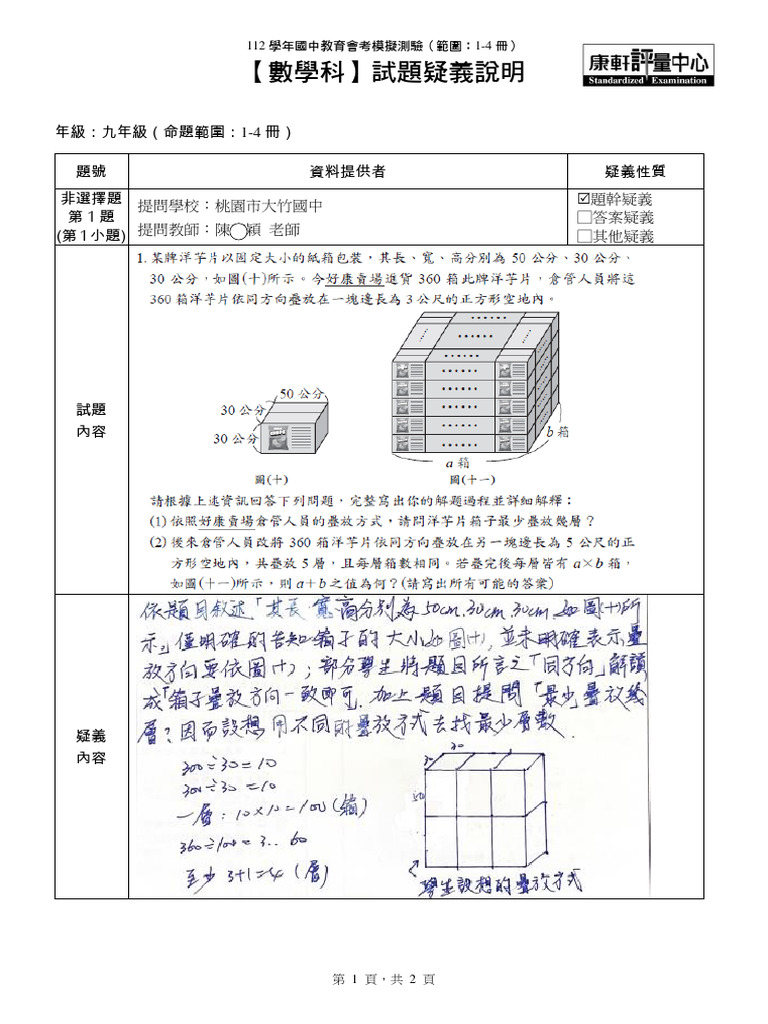 112 學年國中教育會考模擬測驗（範圍：1-4 冊）
【數學科】試題疑義說明
康軒評量中心
Standardized Examination
年級：九年級（命題範圍：1-4 冊）
題號
資料提供者
疑義性質
非選擇題
第 1 題
(第 1 小題)
提問學校：桃園市大竹國中
提問教師：陳◯穎 老師
☑題幹疑義
□答案疑義
□其他疑義
試題
內容
1. 某牌洋芋片以固定大小的紙箱包裝，其長、寬、高分別為 50 公分、30 公分、
30 公分，如圖(十)所示。今好康賣場進貨 360 箱此牌洋芋片，倉管人員將這
360 箱洋芋片依同方向疊放在一塊邊長為 3 公尺的正方形空地內。
50 公分
30 公分
30 公分
圖(十)
a 箱
b 箱
圖(十一)
請根據上述資訊回答下列問題，完整寫出你的解題過程並詳細解釋：
(1) 依照好康賣場倉管人員的疊放方式，請問洋芋片箱子最少疊放幾層？
(2) 後來倉管人員改將 360 箱洋芋片依同方向疊放在另一塊邊長為 5 公尺的正
方形空地內，共疊放 5 層，且每層箱數相同。若疊完後每層皆有 a×b 箱，
如圖(十一)所示，則 a+b 之值為何？(請寫出所有可能的答案)
疑義
內容
依題目敘述「其長、寬、高分別為 50cm、30cm、30cm，如圖(十)所
示」僅明確的告知箱子的大小如圖(十)，並未明確表示疊
放方向要依圖(十)；部分學生將題目所言之「同方向」解讀
成「箱子疊放方向一致即可」，加上題目提問「最少」疊放幾
層？因而設想用不同的疊放方式去找最少層數。
300÷30=10
300÷30=10
一層：10×10=100(箱)
360÷100=3...60
至少 3+1=4 (層)
30
30
50
學生設想的疊放方式
第 1 頁，共 2 頁